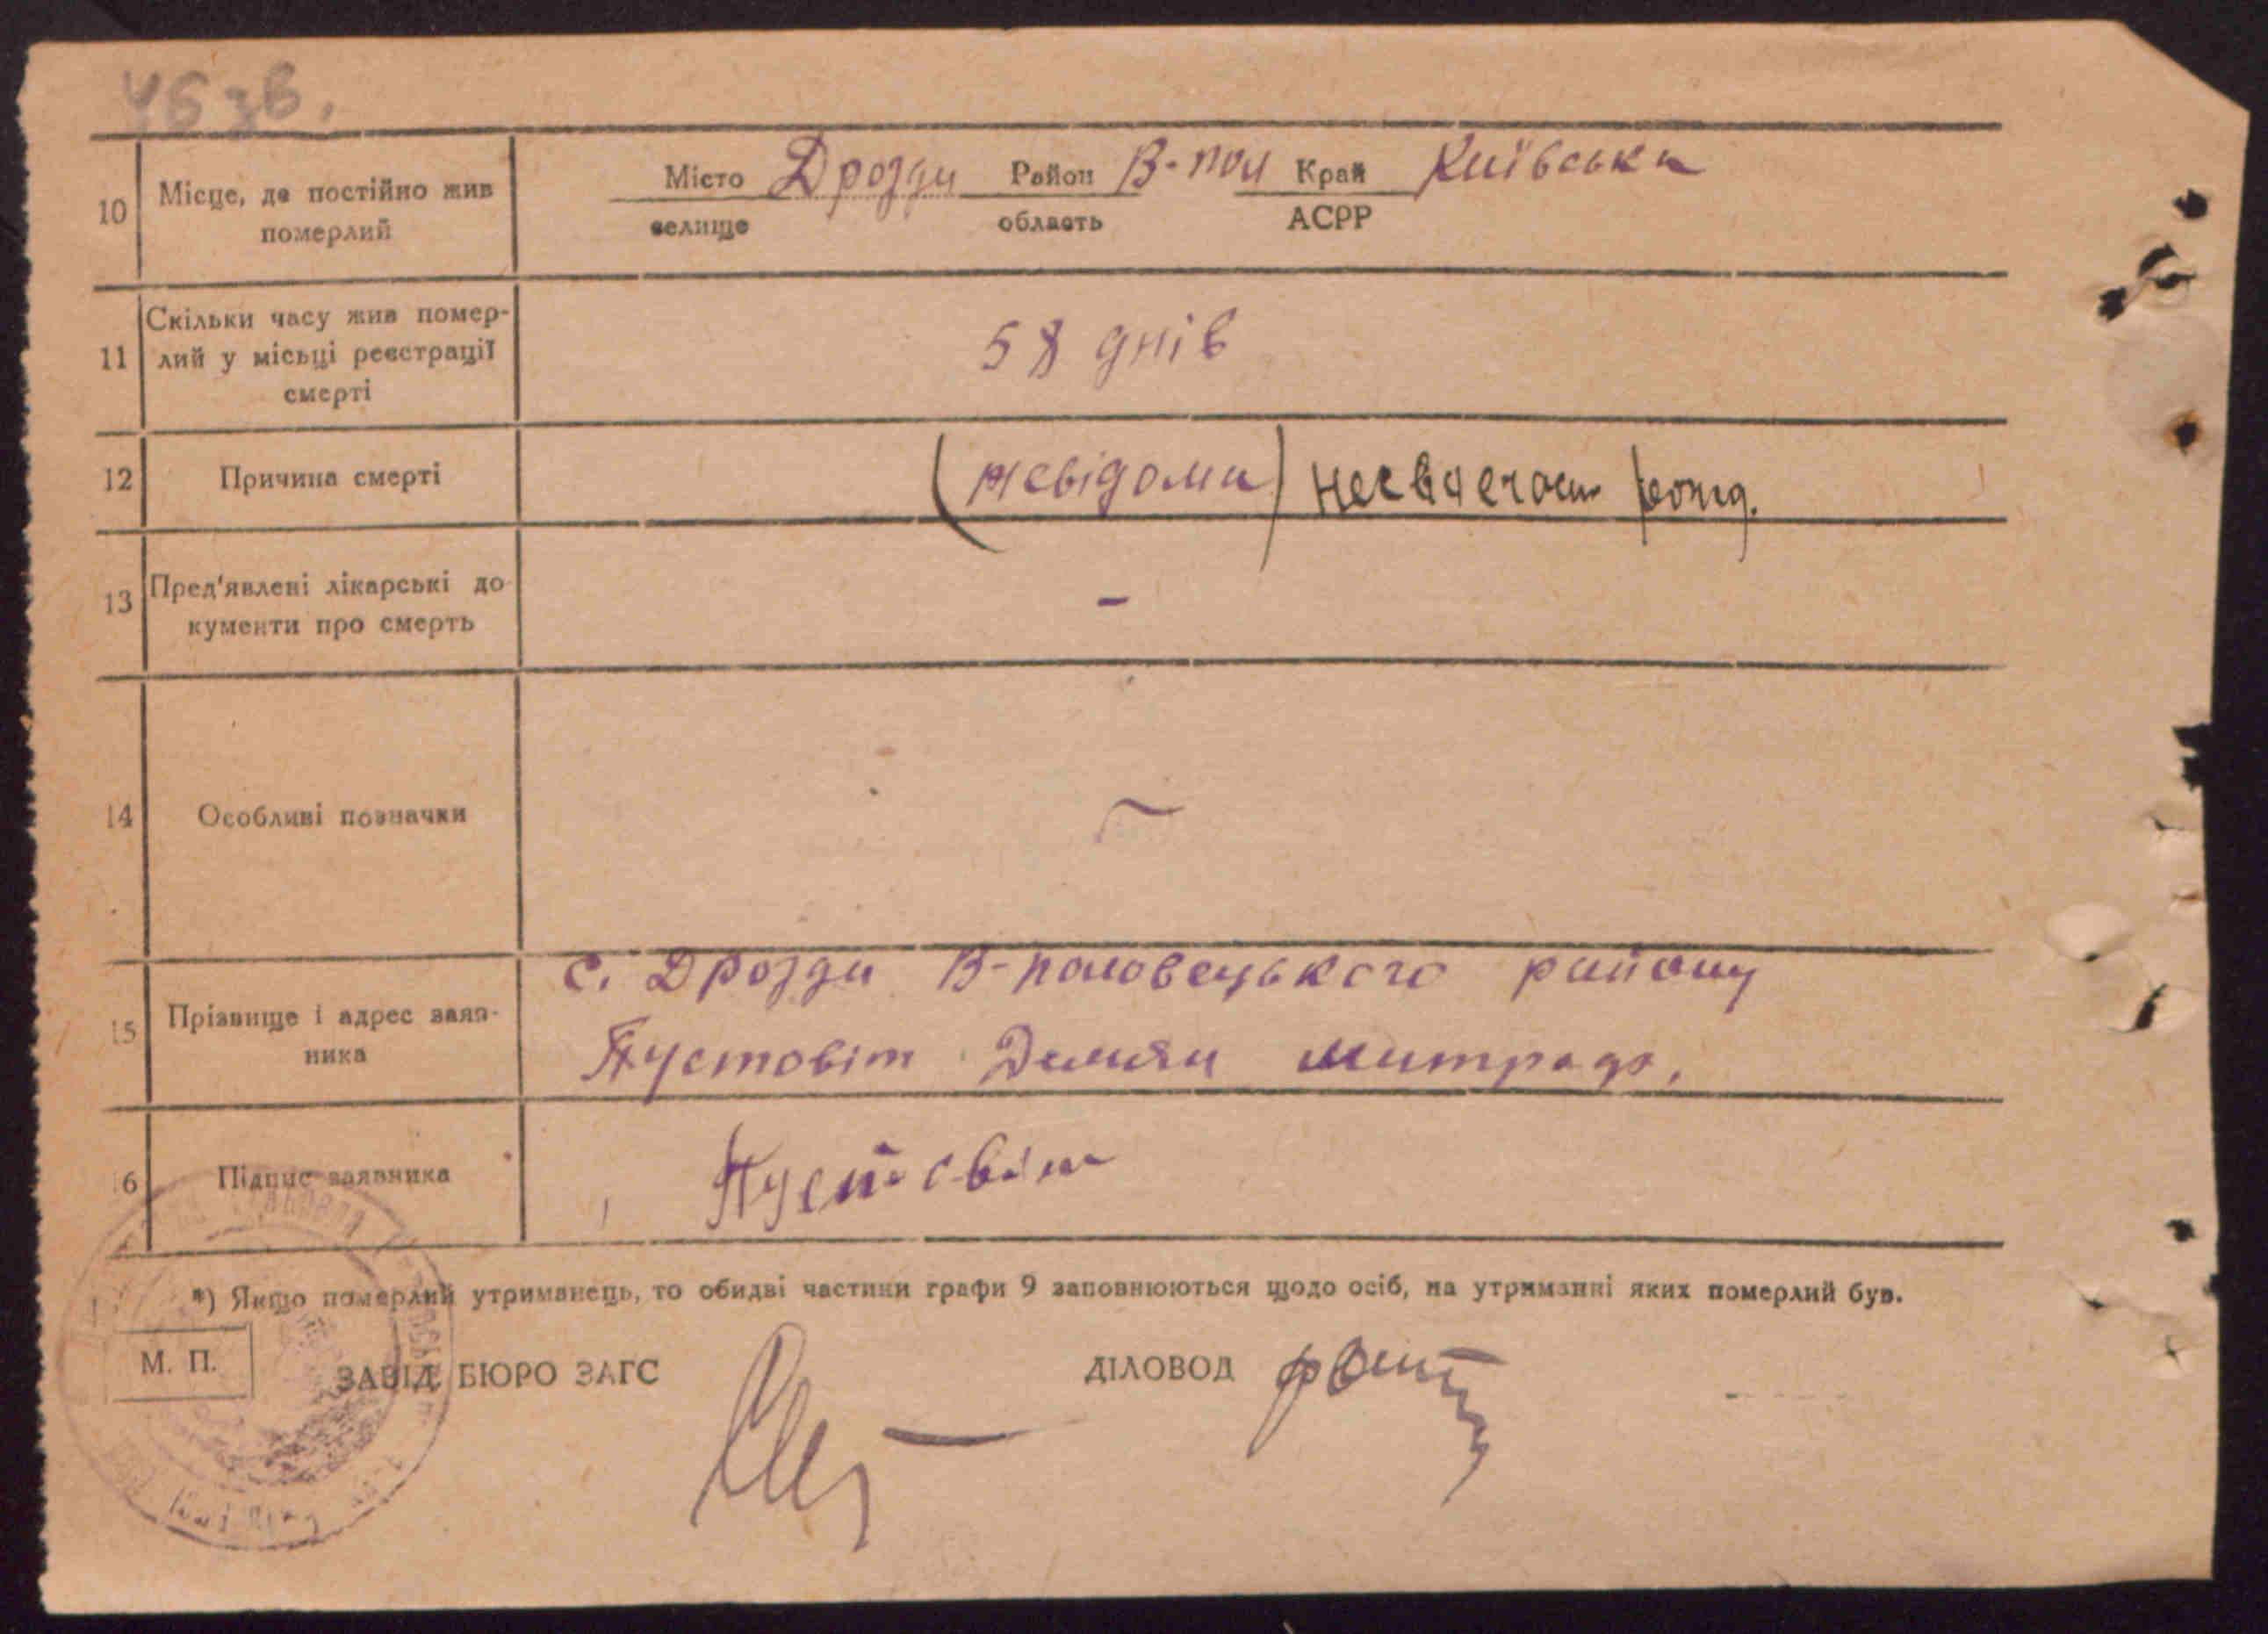 46 зв.
10 Місце, де постійно жив померлий
Місто Дрозди Район В-пол Край Київська
селище область АСРР
11 Скільки часу жив помер-
лий у місьці реєстрації
смерті
58 днів
12 Причина смерті
(невідома)
13 Пред'явлені лікарські до
кументи про смерть
-
14 Особливі позначки
15 Прізвище і адрес заяв-
ника
с. Дрозди В-половецького району
Пустовіт Демян митрадз.
16 Підпис заявника
Пустовіт
*) Якщо померлий утриманець, то обидві частини графи 9 заповнюються щодо осіб, на утриманні яких померлий був.
М. П.
ЗАВІД. БЮРО ЗАГС ДІЛОВОД